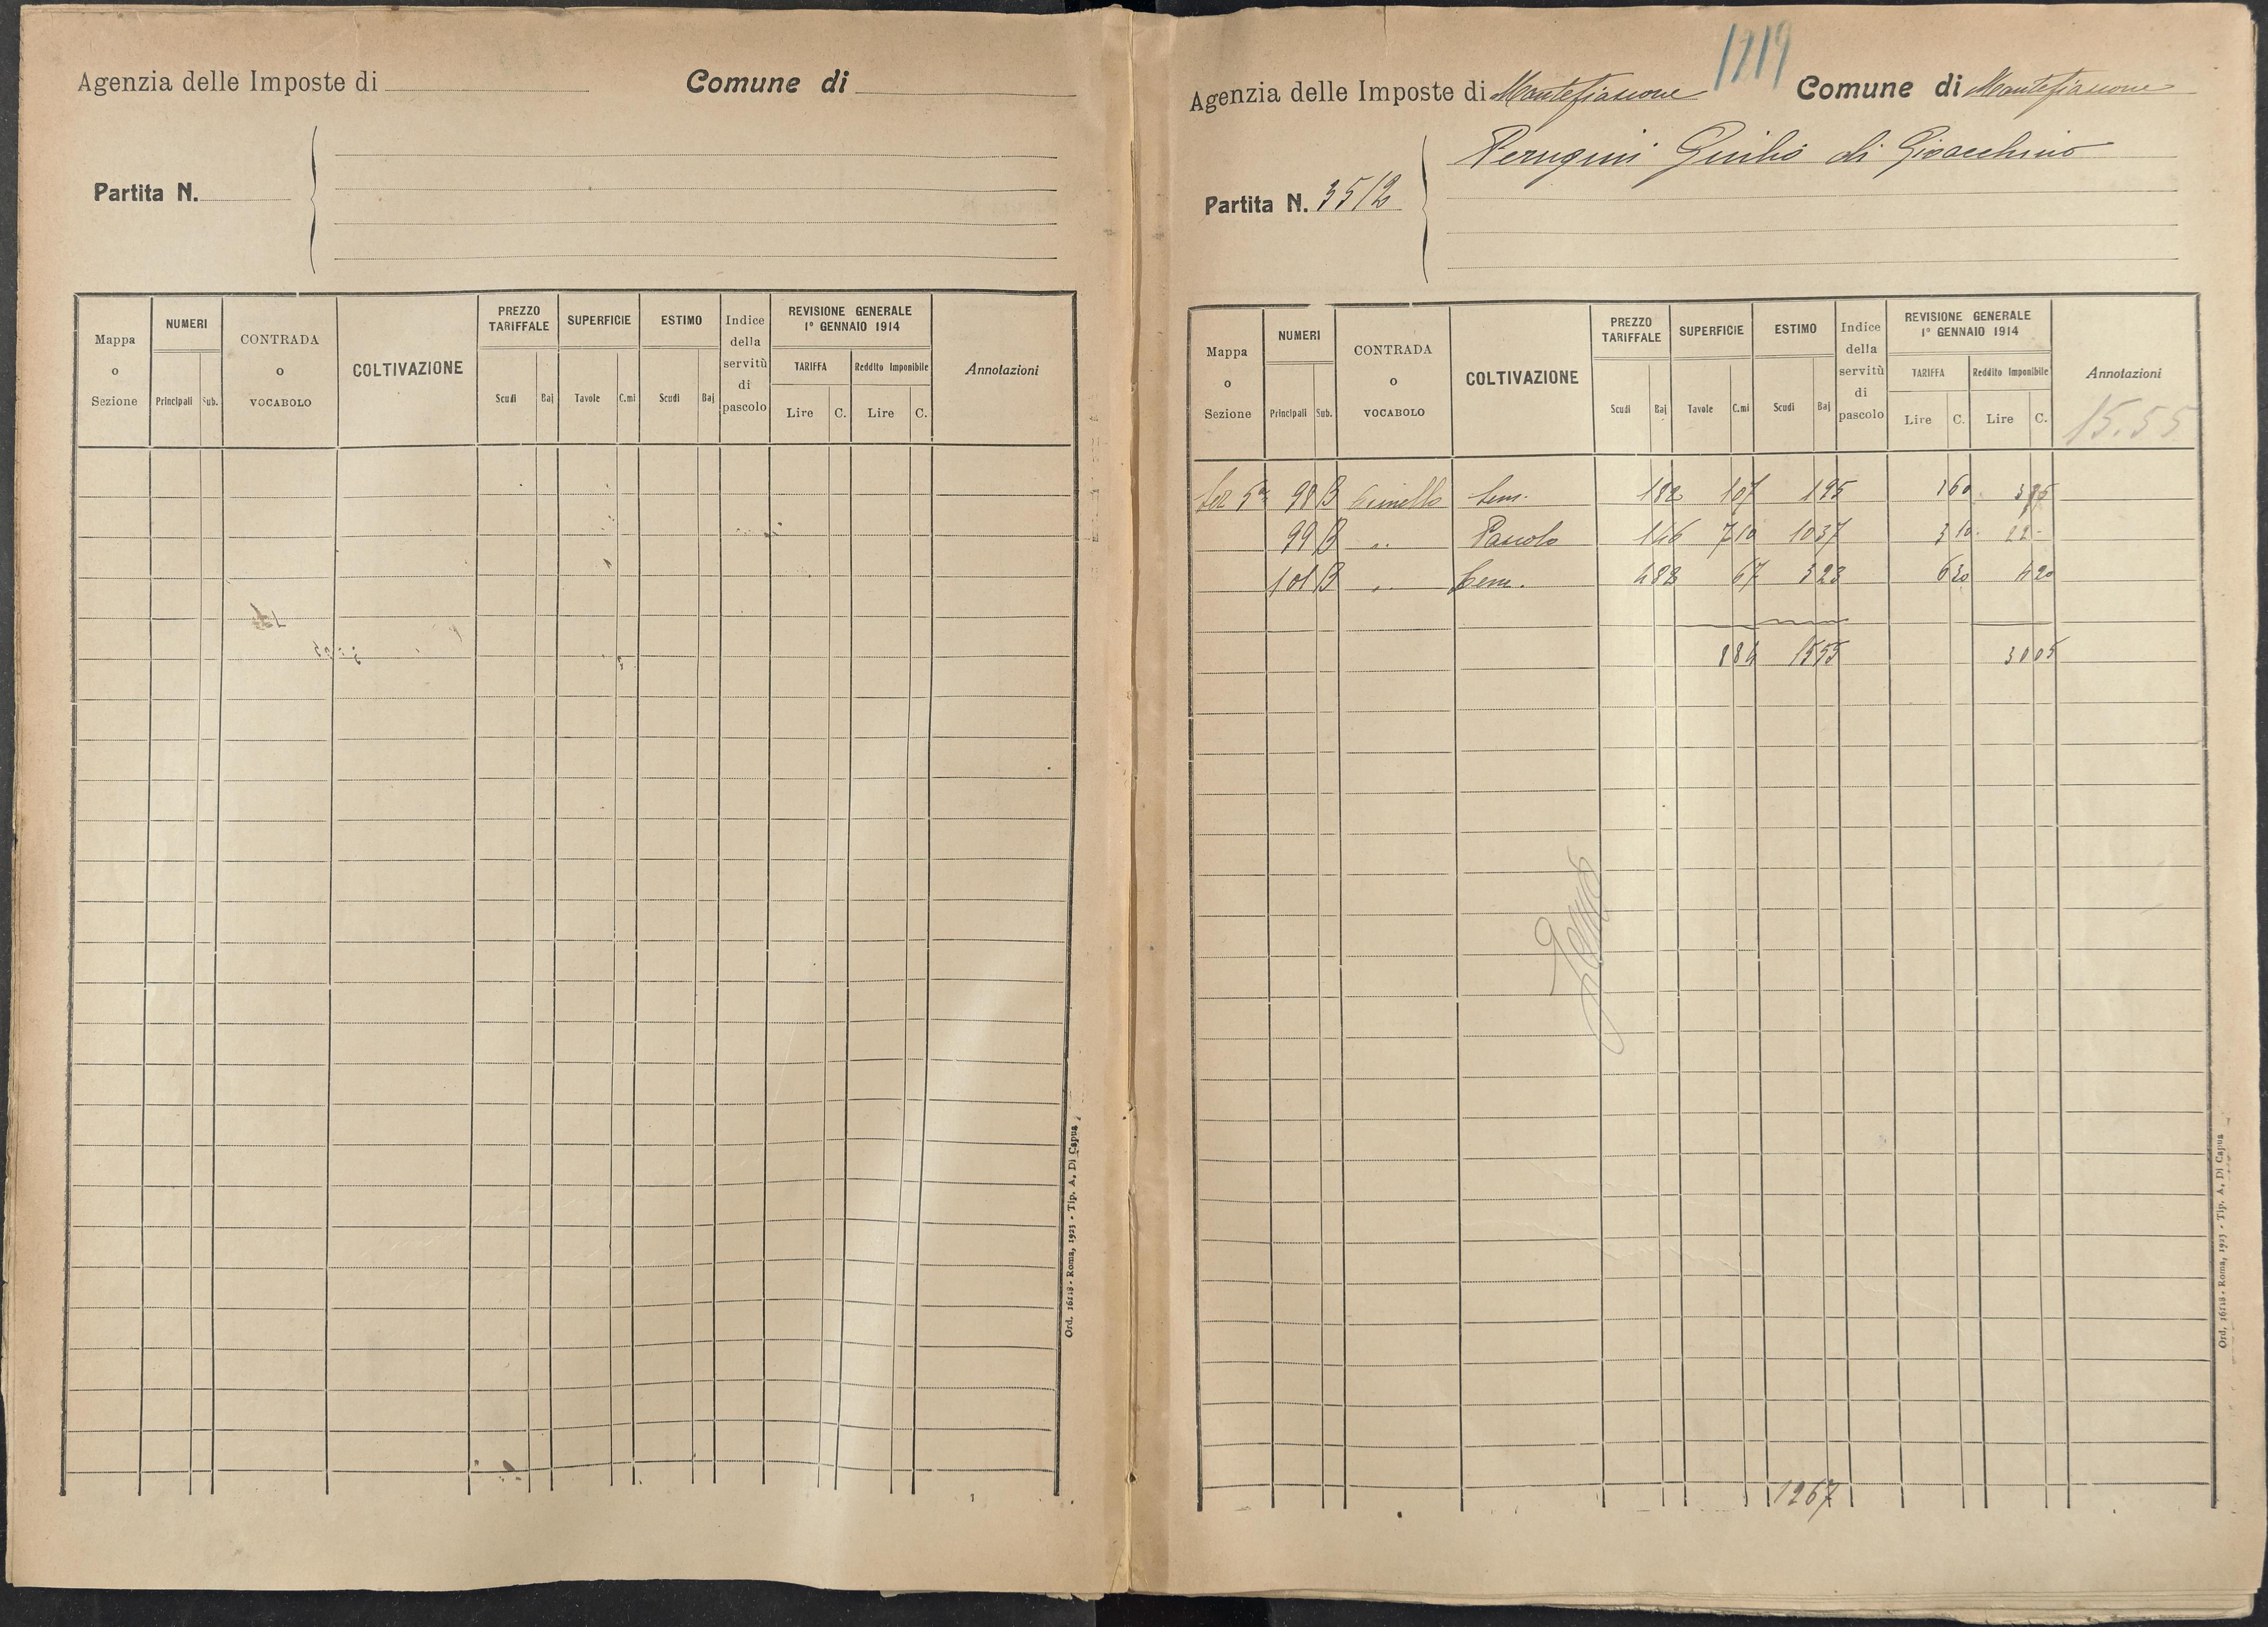 Agenzia delle Imposte di
Comune di
Partita N.
Mappa o Sezione
NUMERI
Principali Sub.
CONTRADA o VOCABOLO
COLTIVAZIONE
PREZZO TARIFFALE
Scudi Baj
SUPERFICIE
Tavole C.mi
ESTIMO
Scudi Baj
Indice della servitù di pascolo
REVISIONE GENERALE
1° GENNAIO 1914
TARIFFA
Lire C.
Reddito Imponibile
Lire C.
Annotazioni
Ord. 16118 - Roma, 1923 - Tip. A. Di Capua
1219
Agenzia delle Imposte di Montefiascone
Comune di Montefiascone
Partita N. 3512
Perugini Giulio di Gioacchino
Mappa o Sezione
NUMERI
Principali Sub.
CONTRADA o VOCABOLO
COLTIVAZIONE
PREZZO TARIFFALE
Scudi Baj
SUPERFICIE
Tavole C.mi
ESTIMO
Scudi Baj
Indice della servitù di pascolo
REVISIONE GENERALE
1° GENNAIO 1914
TARIFFA
Lire C.
Reddito Imponibile
Lire C.
Annotazioni
15.55
Sez 5a 98 B Sem. 182 107 195 360 385
99 B " Pascolo 146 710 1037 310 22-
101 B " Sem. 482 67 323 630 420
884 1555 3005
1267
Ord. 16118 - Roma, 1923 - Tip. A. Di Capua